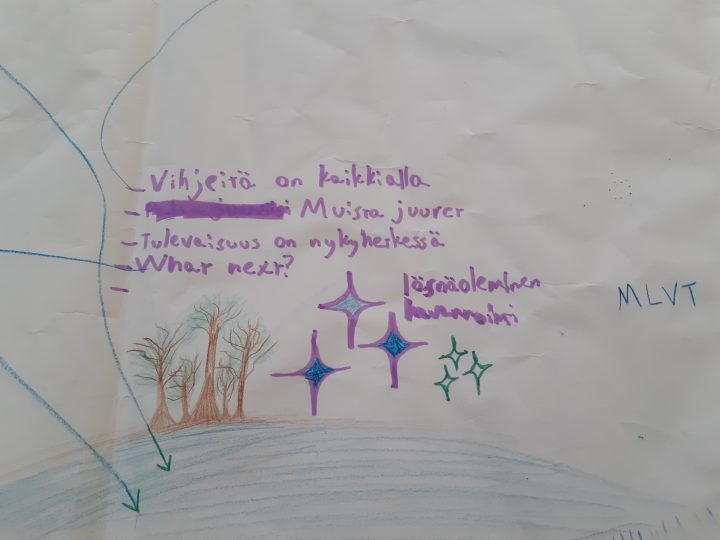 - Vihjeitä on kaikkialla
- Muista juuret
- Tulevaisuus on nykyhetkessä
- What next?
-
Läsnäoleminen
MLVT